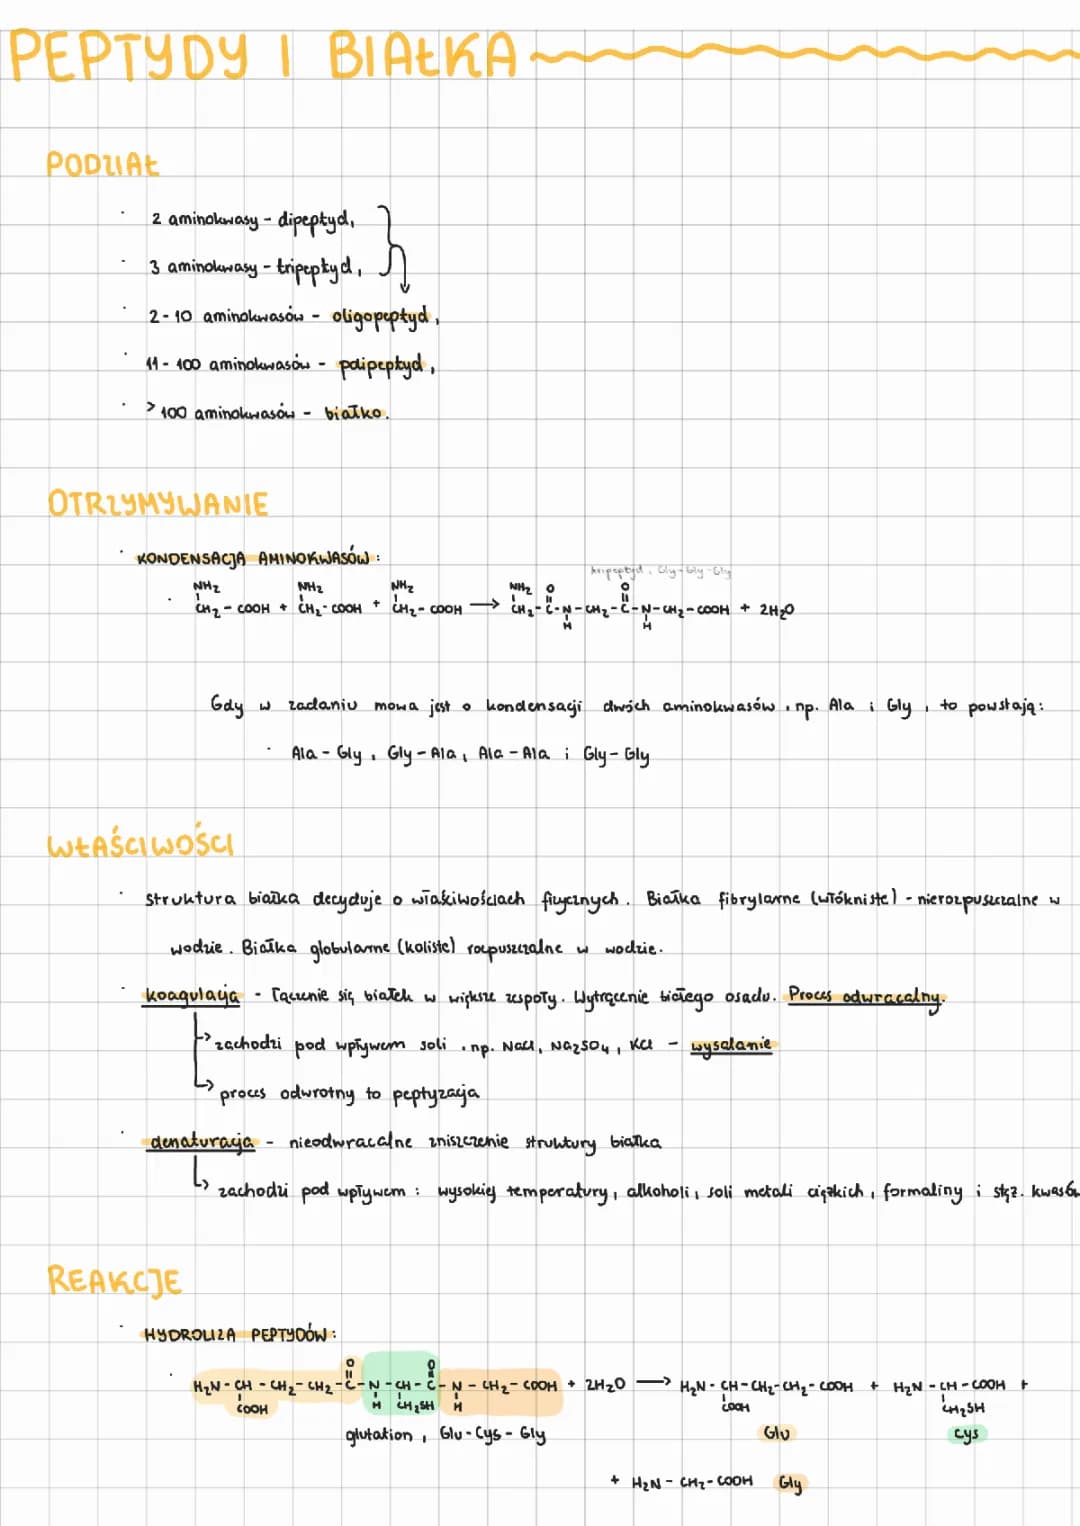 PEPTYDY I BIAŁKA
PODZIAŁ
· 2 aminokwasy - dipeptyd,
· 3 aminokwasy - tripeptyd,
· 2-10 aminokwasów - oligopeptyd,
· 11-100 aminokwasów - polipeptyd,
· >100 aminokwasów - białko.
OTRZYMYWANIE
· KONDENSACJA AMINOKWASÓW:
tripeptyd, Gly-Gly-Gly
NH2 NH2 NH2 NH2 O O
· CH2 - COOH + CH2 - COOH + CH2 - COOH → CH2 - C - N - CH2 - C - N - CH2 - COOH + 2H2O
H H
Gdy w zadaniu mowa jest o kondensacji dwóch aminokwasów, np. Ala i Gly, to powstają:
· Ala - Gly, Gly - Ala, Ala - Ala i Gly - Gly
WŁAŚCIWOŚCI
· struktura białka decyduje o właściwościach fizycznych. Białka fibrylarne (włókniste) - nierozpuszczalne w
wodzie. Białka globularne (koliste) rozpuszczalne w wodzie.
· koagulacja - łączenie się białek w większe zespoły. Wytrącenie białego osadu. Proces odwracalny.
↳ zachodzi pod wpływem soli, np. NaCl, Na2SO4, KCl - wysalanie
↳ proces odwrotny to peptyzacja
· denaturacja - nieodwracalne zniszczenie struktury białka
↳ zachodzi pod wpływem: wysokiej temperatury, alkoholi, soli metali ciężkich, formaliny i stęż. kwasów
REAKCJE
· HYDROLIZA PEPTYDÓW:
O O
· H2N - CH - CH2 - CH2 - C - N - CH - C - N - CH2 - COOH + 2H2O → H2N - CH - CH2 - CH2 - COOH + H2N - CH - COOH +
COOH H CH2SH H COOH CH2SH
glutation, Glu - Cys - Gly Glu Cys
+ H2N - CH2 - COOH Gly